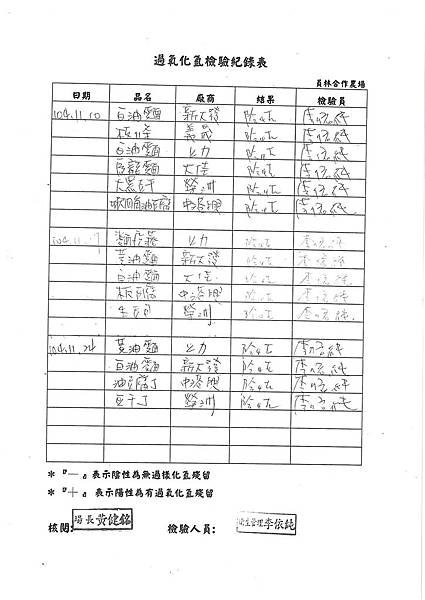 過氧化氫檢驗紀錄表
員林合作農場
日期 品名 廠商 結果 檢驗員
104.11.10 白油麵 新大發 陰性 李依純
義發 陰性 李依純
白油麵 上力 陰性 李依純
大佳 陰性 李依純
榮洲 陰性 李依純
陰性 李依純
104.11. 上力 陰性 李依純
黃油麵 新大發 陰性 李依純
白油麵 大佳 陰性 李依純
板豆腐 陰性 李依純
榮洲 陰性 李依純
104.11.24 黃油麵 上力 陰性 李依純
白油麵 新大發 陰性 李依純
油豆腐丁 陰性 李依純
豆干丁 榮洲 陰性 李依純
* 『－』表示陰性為無過樣化氫殘留
* 『＋』表示陽性為有過氧化氫殘留
核閱: 場長黃健銘 檢驗人員: 衛生管理李依純